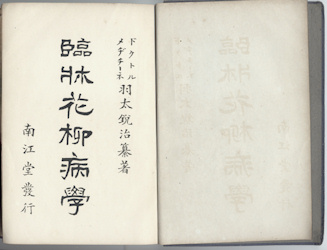 ドクトル
メヂチーネ
羽太鋭治纂著
臨牀花柳病學
南江堂發行